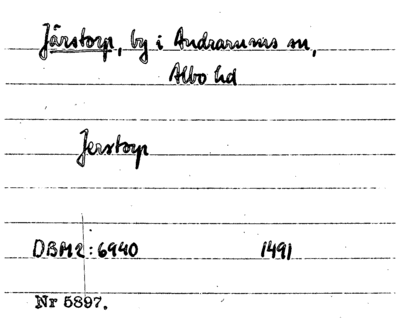 Järstorp, by i Andrarums sn,
Albo hd
Jerstorp
DBM2:6940 1491
Nr 5897.